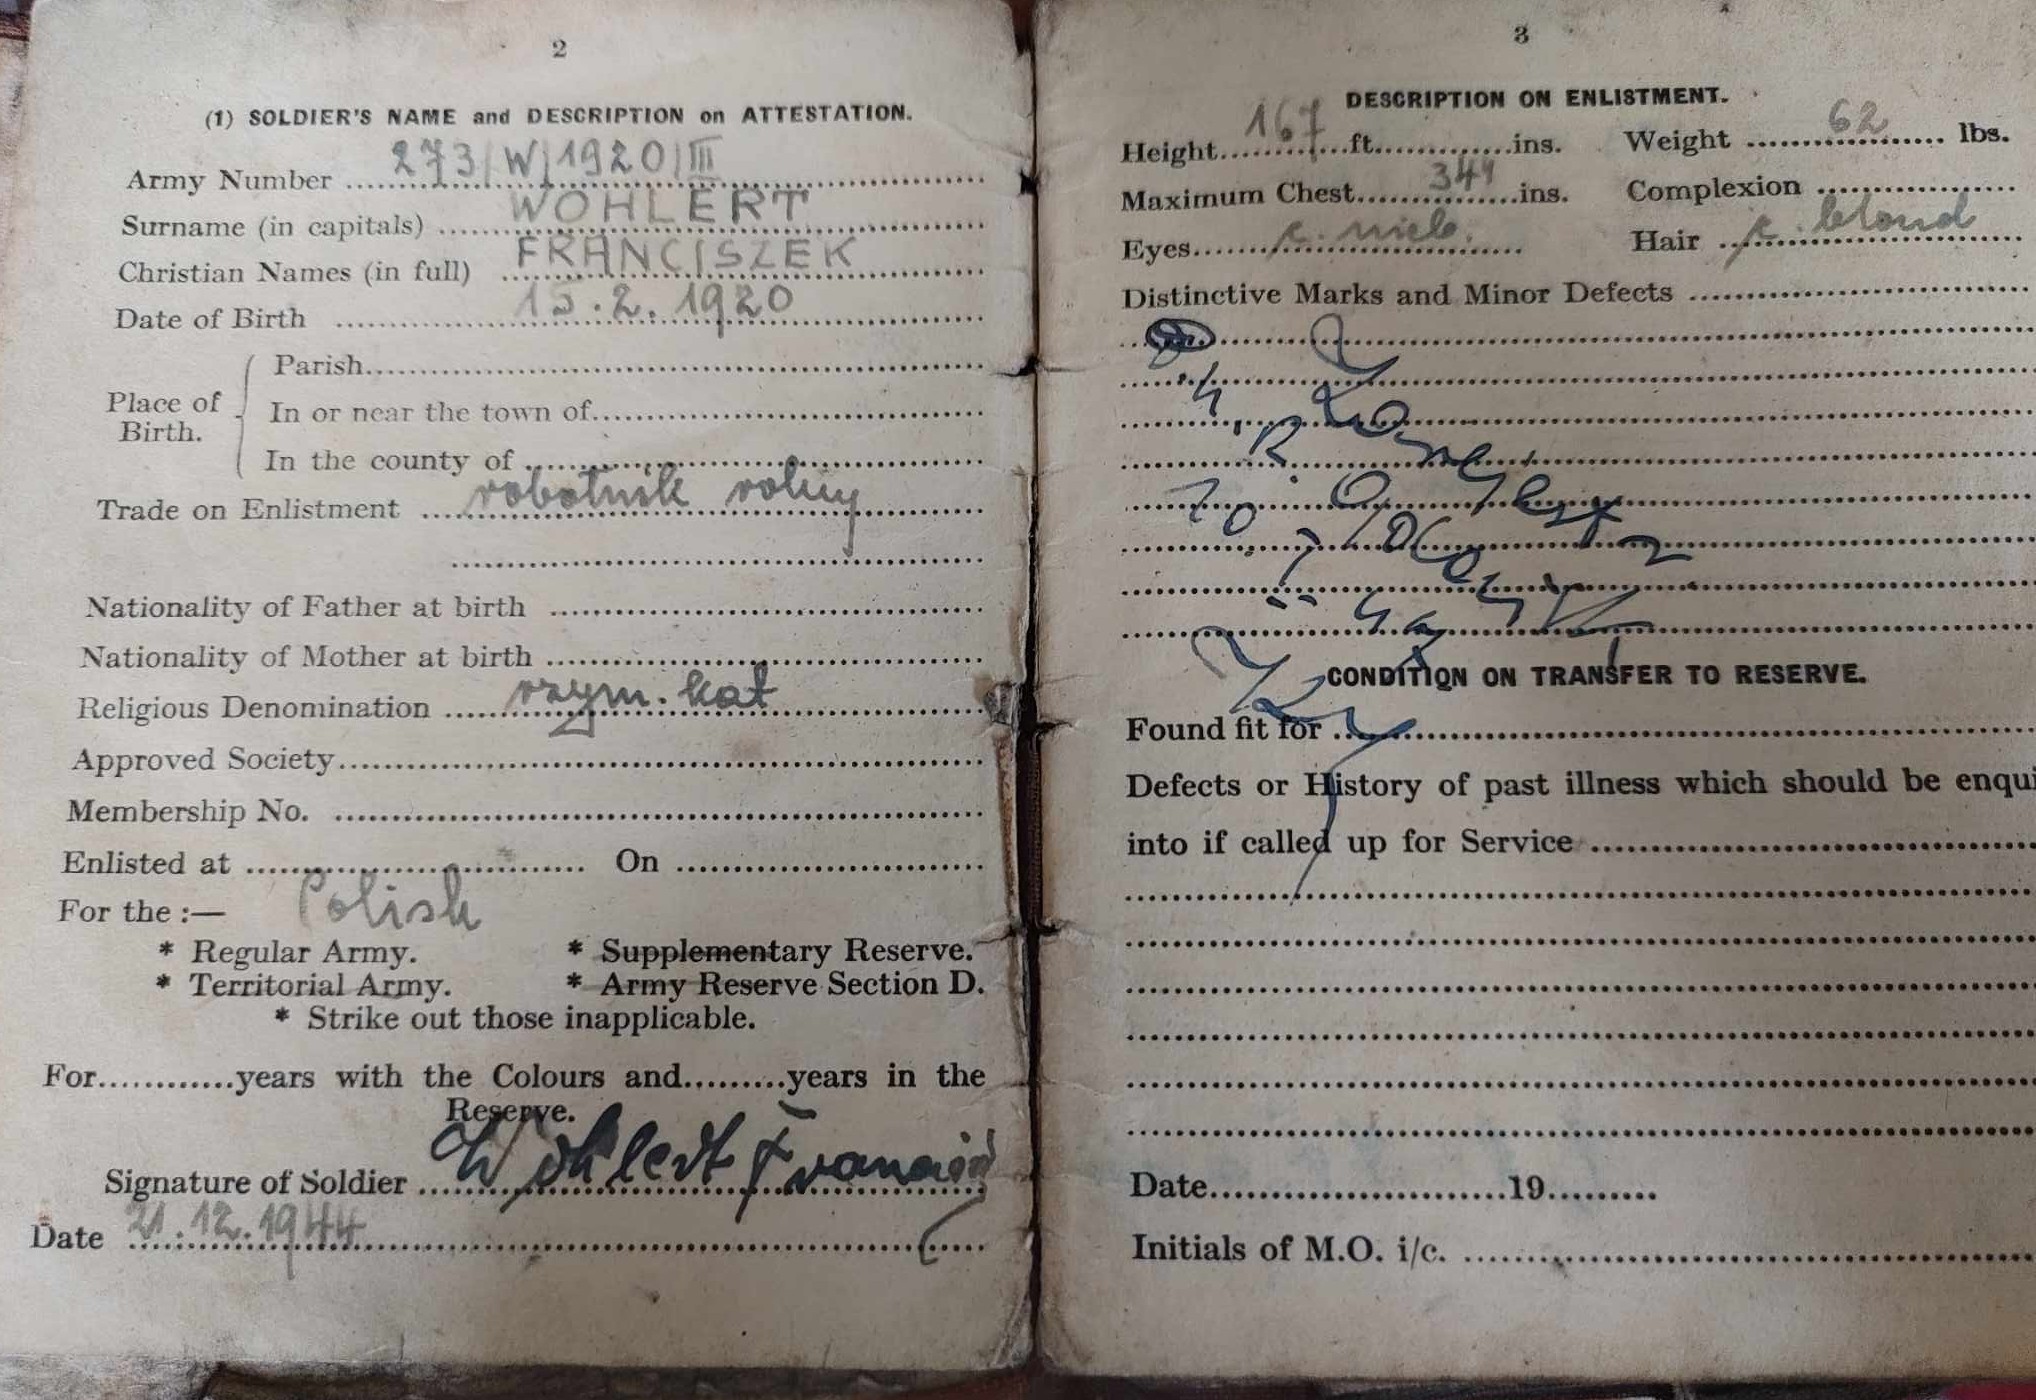 2
(1) SOLDIER'S NAME and DESCRIPTION on ATTESTATION.
Army Number 273/W/1920/III
Surname (in capitals) WOHLERT
Christian Names (in full) FRANCISZEK
Date of Birth 15.2.1920
Place of Birth.
Parish
In or near the town of
In the county of
Trade on Enlistment robotnik rolny
Nationality of Father at birth
Nationality of Mother at birth
Religious Denomination rzym. kat
Approved Society
Membership No.
Enlisted at On
For the :— Polish
* Regular Army. * Supplementary Reserve.
* Territorial Army. * Army Reserve Section D.
* Strike out those inapplicable.
For years with the Colours and years in the
Reserve.
Signature of Soldier Wohlert
Date 21.12.1944
3
DESCRIPTION ON ENLISTMENT.
Height 167 ft ins. Weight 62 lbs.
Maximum Chest ins. Complexion
Eyes c. nieb. Hair c. blond
Distinctive Marks and Minor Defects
CONDITION ON TRANSFER TO RESERVE.
Found fit for
Defects or History of past illness which should be enqui
into if called up for Service
Date 19
Initials of M.O. i/c.